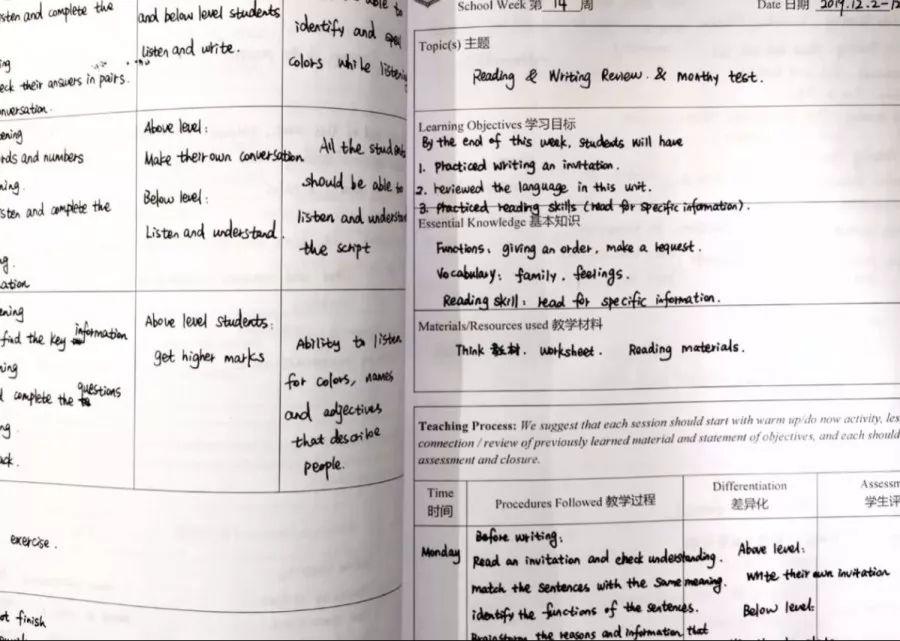 sten and complete the
and below level students
able to
listen and write.
identify and
colors while listening
eck their answers in pairs.
nversation.
ening
rds and numbers
ning.
sten and complete the
g.
ation
Above level:
Make their own conversation
Below level:
Listen and understand.
All the students
should be able to
listen and understand
the script
ening
find the key information
ning
d complete the questions
ng.
ack.
Above level students:
get higher marks
Ability to listen
for colors, names
and adjectives
that describe
people.
exercise.
ot finish
School Week 第 14 周
Date 日期 2019.12.2-12
Topic(s) 主题
Reading & Writing Review. & monthy test.
Learning Objectives 学习目标
By the end of this week, students will have
1. Practiced writing an invitation.
2. reviewed the language in this unit.
3. Practiced reading skills (read for specific information).
Essential Knowledge 基本知识
Functions: giving an order, make a request.
Vocabulary: family, feelings.
Reading skill: read for specific information.
Materials/Resources used 教学材料
Think 教材. worksheet. Reading materials.
Teaching Process: We suggest that each session should start with warm up/do now activity, les
connection / review of previously learned material and statement of objectives, and each should
assessment and closure.
Time
时间
Procedures Followed 教学过程
Differentiation
差异化
Assessm
学生评
Monday
Before writing:
Read an invitation and check understanding.
match the sentences with the same meaning.
identify the functions of the sentences.
Brainstorm the reasons and information that
Above level:
write their own invitation
Below level: